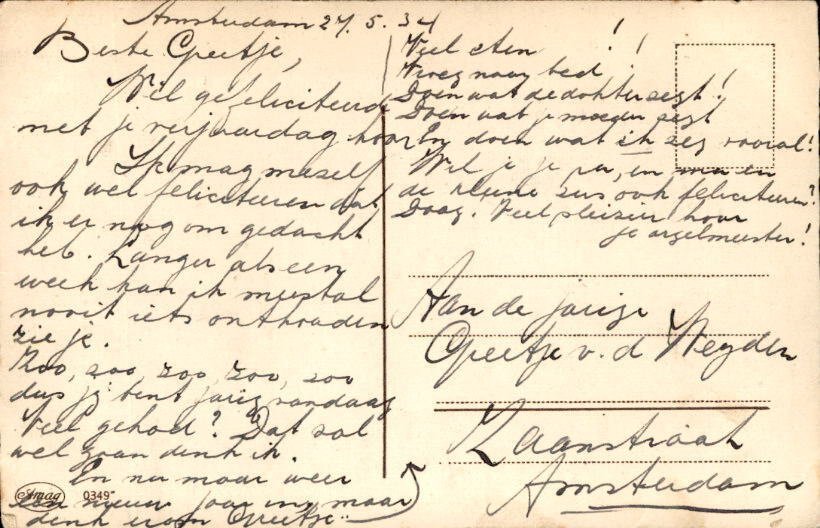 Amsterdam 27.5.34
Beste Greetje,
Wel gefeliciteerd
met je verjaardag hoor
Ik mag mezelf
ook wel feliciteren dat
ik er nog om gedacht
heb. Langer als een
week kan ik meestal
nooit iets onthouden
zie je.
Zoo, zoo, zoo, zoo, zoo
dus jij bent jarig vandaag
Veel gehad? Dat zal
wel gaan denk ik.
En nu maar weer
een nieuw jaar in, maar
denk erom Greetje:
Amag 0349
Veel eten !
Vroeg naar bed !
Doen wat de dokter zegt !
Doen wat je moeder zegt !
En doen wat ik zeg vooral!
Wil je je pa, en ma en
de kleine zus ook feliciteren?
Daag. Veel pleizier hoor
je orgelmeester!
Aan de jarige
Greetje v.d Weyden
Zaanstraat
Amsterdam